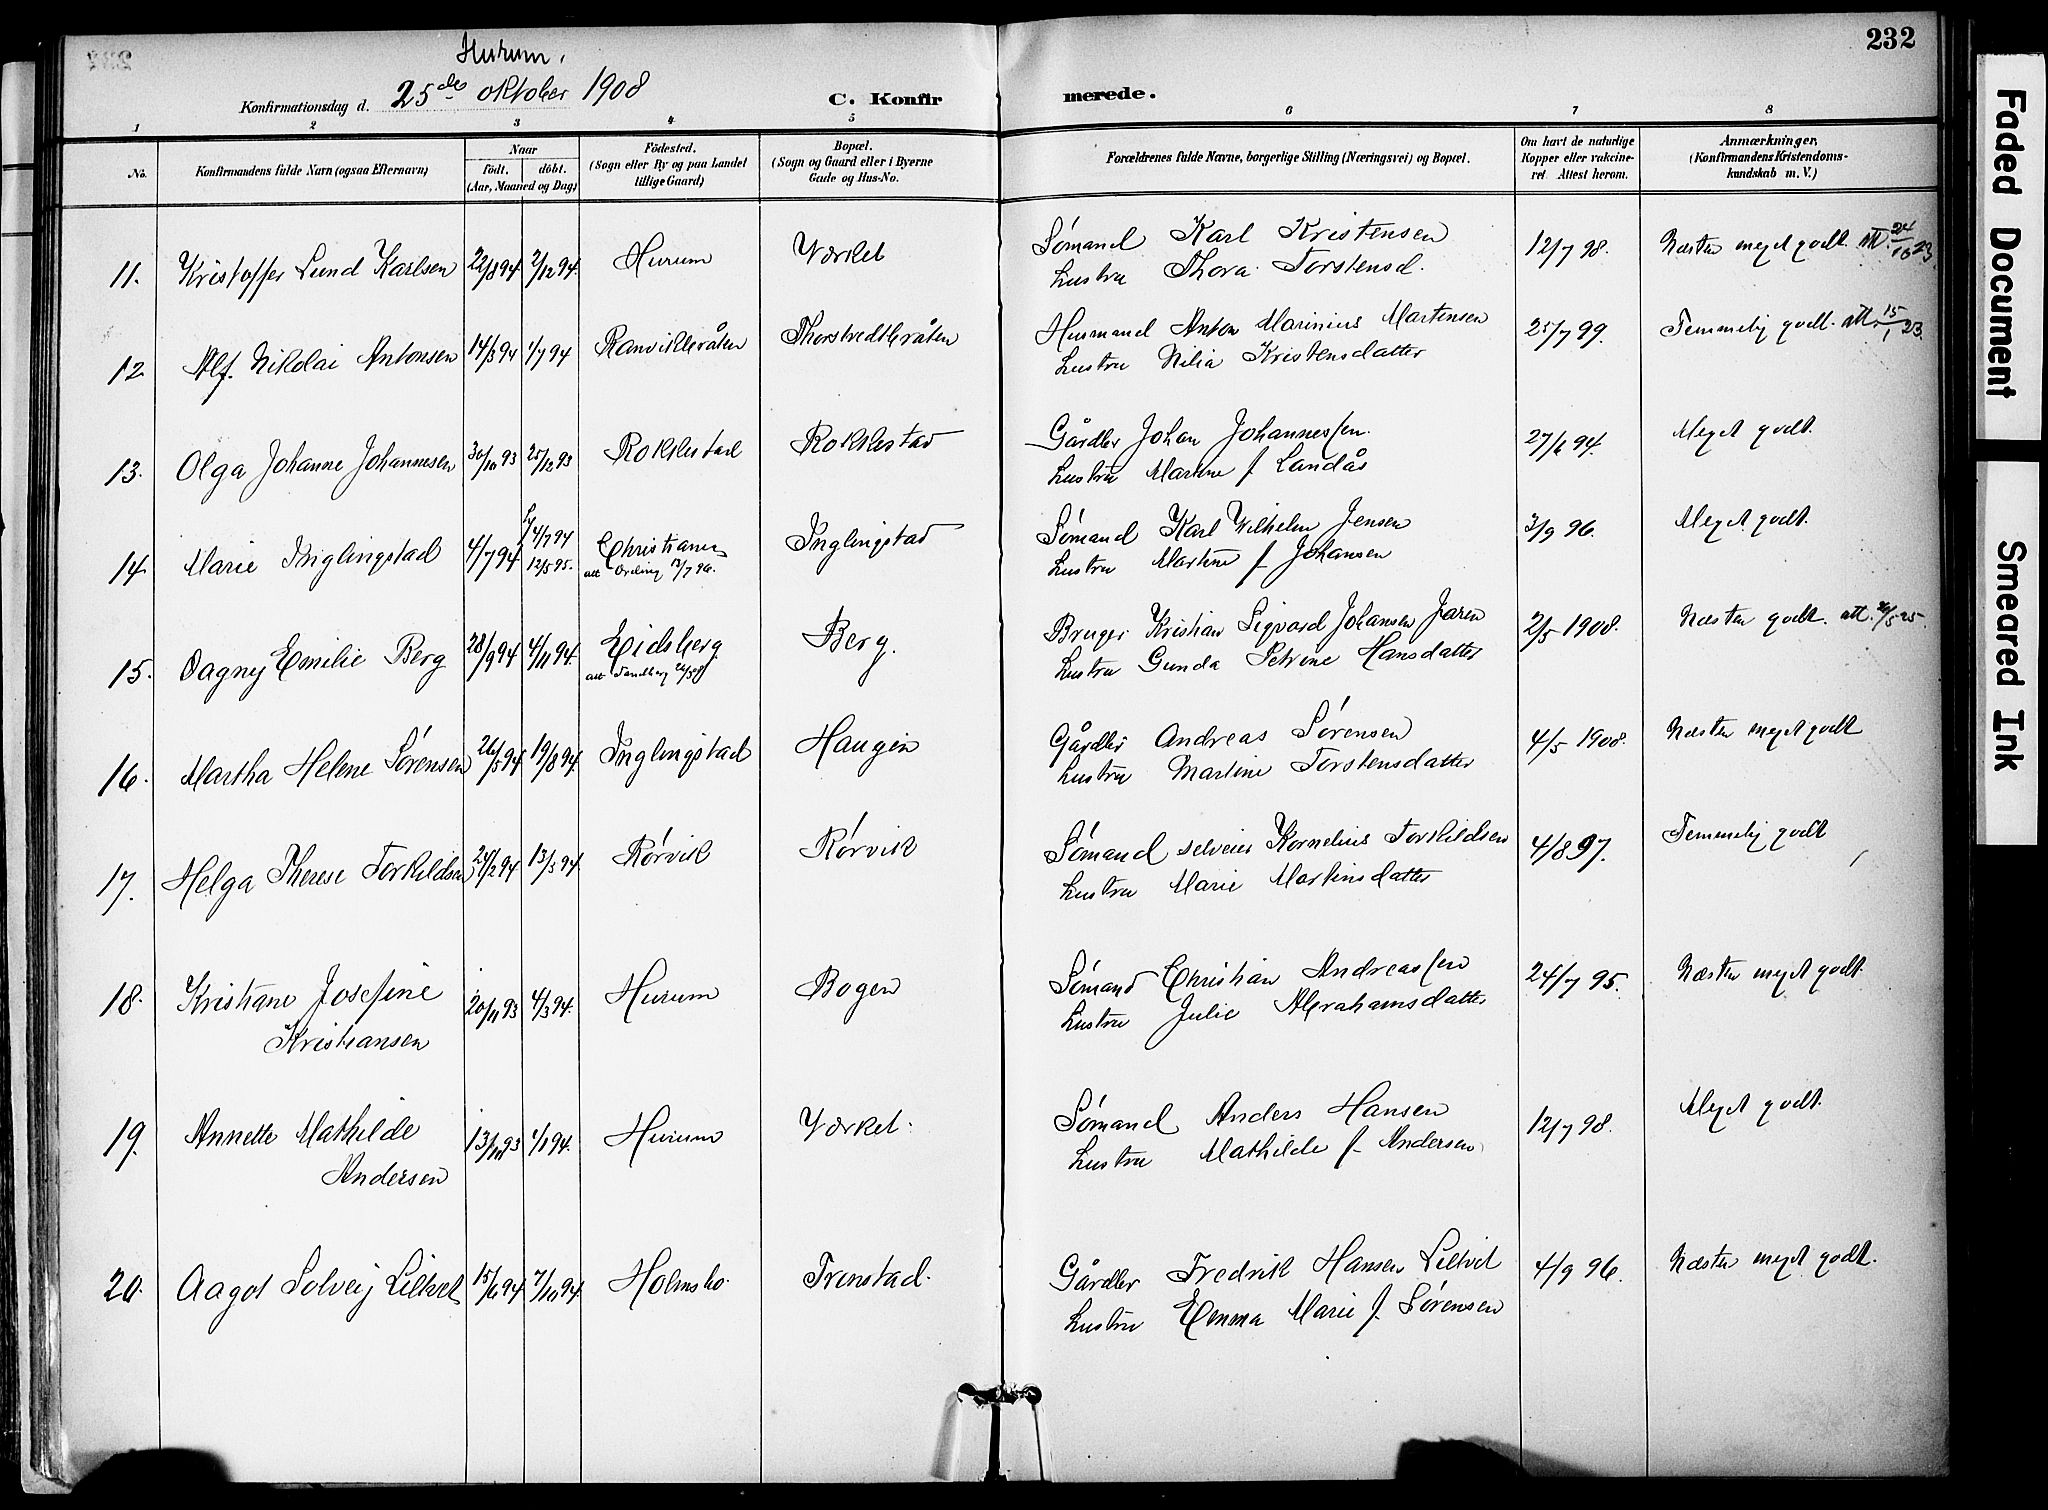 232
Hurum.
Konfirmationsdag d. 25de oktober 1908
C. Konfirmerede.
1 2 3 4 5 6 7 8
No.
Konfirmandens fulde Navn (ogsaa Efternavn)
Naar
født. døbt.
(Aar, Maaned og Dag)
Fødested.
(Sogn eller By og paa Landet
tillige Gaard)
Bopæl.
(Sogn og Gaard eller i Byerne
Gade og Hus-No.
Forældrenes fulde Navne, borgerlige Stilling (Næringsvei) og Bopæl.
Om havt de naturlige
Kopper eller vakcine-
ret. Attest herom.
Anmærkninger,
(Konfirmandens Kristendoms-
kundskab m. V.)
11. Kristoffer Lund Karlsen 22/8 94 2/12 94. Hurum Værket Sømand Karl Kristensen 12/7 98. Næsten meget godt. att. 24/10 23.
Hustru Thora Torstensd.
12 Alf. Nikolai Antonsen 14/3 94 1/7 94 Ranvikbråten Thorstvedtbråten Husmand Anton Marinius Martinsen 25/7 99. Temmelig godt. att. 15/1 23.
Hustru Nilia Kristensdatter
13. Olga Johanne Johannesen 30/10 93 25/12 93 Roklestad Roklestad Gårdbr Johan Johannessen. 27/6 94. Meget godt.
Hustru Martine f. Landås
14 Marie Inglingstad 4/7 94 4/7 94 12/5 95. Christiania Inglingstad Sømand Karl Wilhelm Jensen 3/9 96. Meget godt.
Hustru Martine f. Johansen
15. Dagny Emilie Berg 28/9 94 4/11 94. Eidsberg Berg. Bruger Kristian Sigvard Johansen Jaren 2/5 1908. Næsten godt. att. 26/5 25.
att Sandberg 26/5 08 Hustru Gunda Petrine Hansdatter
16. Martha Helene Sørensen 26/5 94 19/8 94. Inglingstad Haugen Gårdbr Andreas Sørensen 4/5 1908. Næsten meget godt
Hustru Martine Torstensdatter
17. Helga Therese Torkildsen 24/2 94 13/5 94. Rørvik Rørvik Sømand selveier Kornelius Torkildsen 4/8 97. Temmelig godt
Hustru Marie Martinsdatter
18. Kristiane Josefine 20/11 93 4/3 94. Hurum Bogen Sømand Christian Andreassen 24/7 95. Næsten meget godt.
Kristiansen Hustru Julie Abrahamsdatter
19. Annette Mathilde 13/11 93 1/1 94. Hurum Værket. Sømand Anders Hansen 12/7 98. Meget godt.
Andersen Hustru Mathilde f. Andersen
20. Aagot Solveig Liltvet 15/6 94 7/10 94 Holmsbo. Tronstad. Gårdbr Fredrik Hansen Liltvet 4/9 96. Næsten meget godt.
Hustru Emma Marie f. Sørensen
Faded Document
Smeared Ink